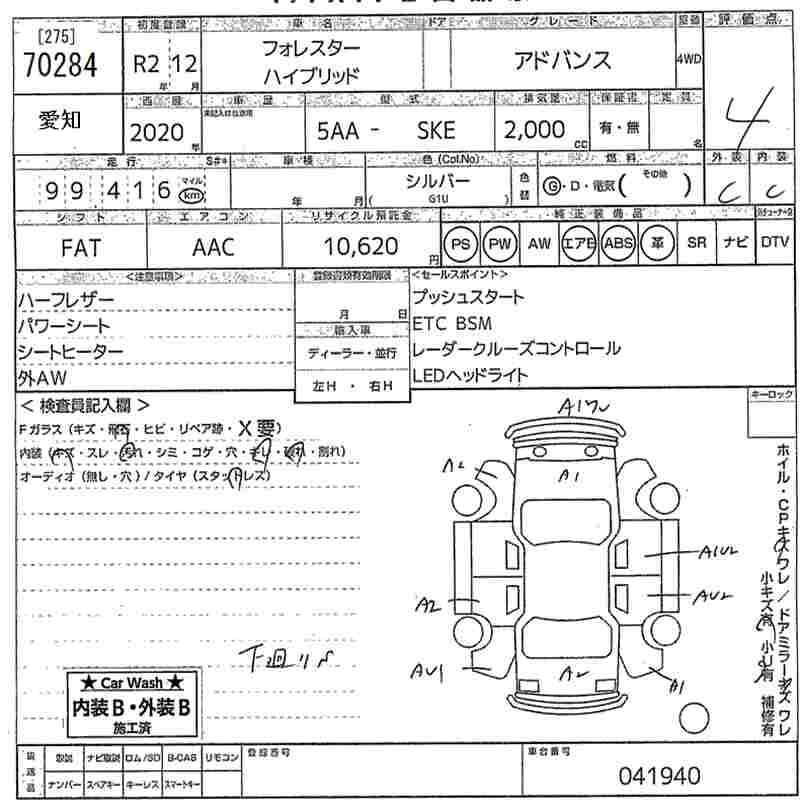 [275]
70284
初度登録
R2年 12月
車名
フォレスター
ハイブリッド
ドア
グレード
アドバンス
4WD
評価点
4
愛知
2020年
車歴
型式
5AA - SKE
排気量
2,000cc
保証書
有・無
定員
名
外装
内装
C
C
走行
99416
マイル
km
S#*
車検
年 月
色(Col.No)
シルバー
( G1U )
色替
燃料
Ⓖ・D・電気( その他 )
シフト
FAT
エアコン
AAC
リサイクル預託金
10,620円
純正装備品
PS
PW
AW
エアB
ABS
革
SR
ナビ
DTV
<注意事項>
ハーフレザー
パワーシート
シートヒーター
外AW
登録書類有効期限
月 日
輸入車
ディーラー・並行
左H ・ 右H
<セールスポイント>
プッシュスタート
ETC BSM
レーダークルーズコントロール
LEDヘッドライト
< 検査員記入欄 >
Fガラス(キズ・飛石・ヒビ・リペア跡・X要)
内装(キズ・スレ・汚れ・シミ・コゲ・穴・キレ・破れ・割れ)
オーディオ(無し・穴)/タイヤ(スタッドレス)
下廻りS
キーロック
A2
A1
A1U2
AU2
A2
AU1
A2
A1
ホイル・CPキズワレ/ドアミラーキズワレ
小キズ有 小U有 補修有
★ Car Wash ★
内装B・外装B
施工済
取説
ナビ取説
ロム/SD
B-CAS
リモコン
ナンバー
スペアキー
キーレス
スマートキー
登録番号
車台番号
041940